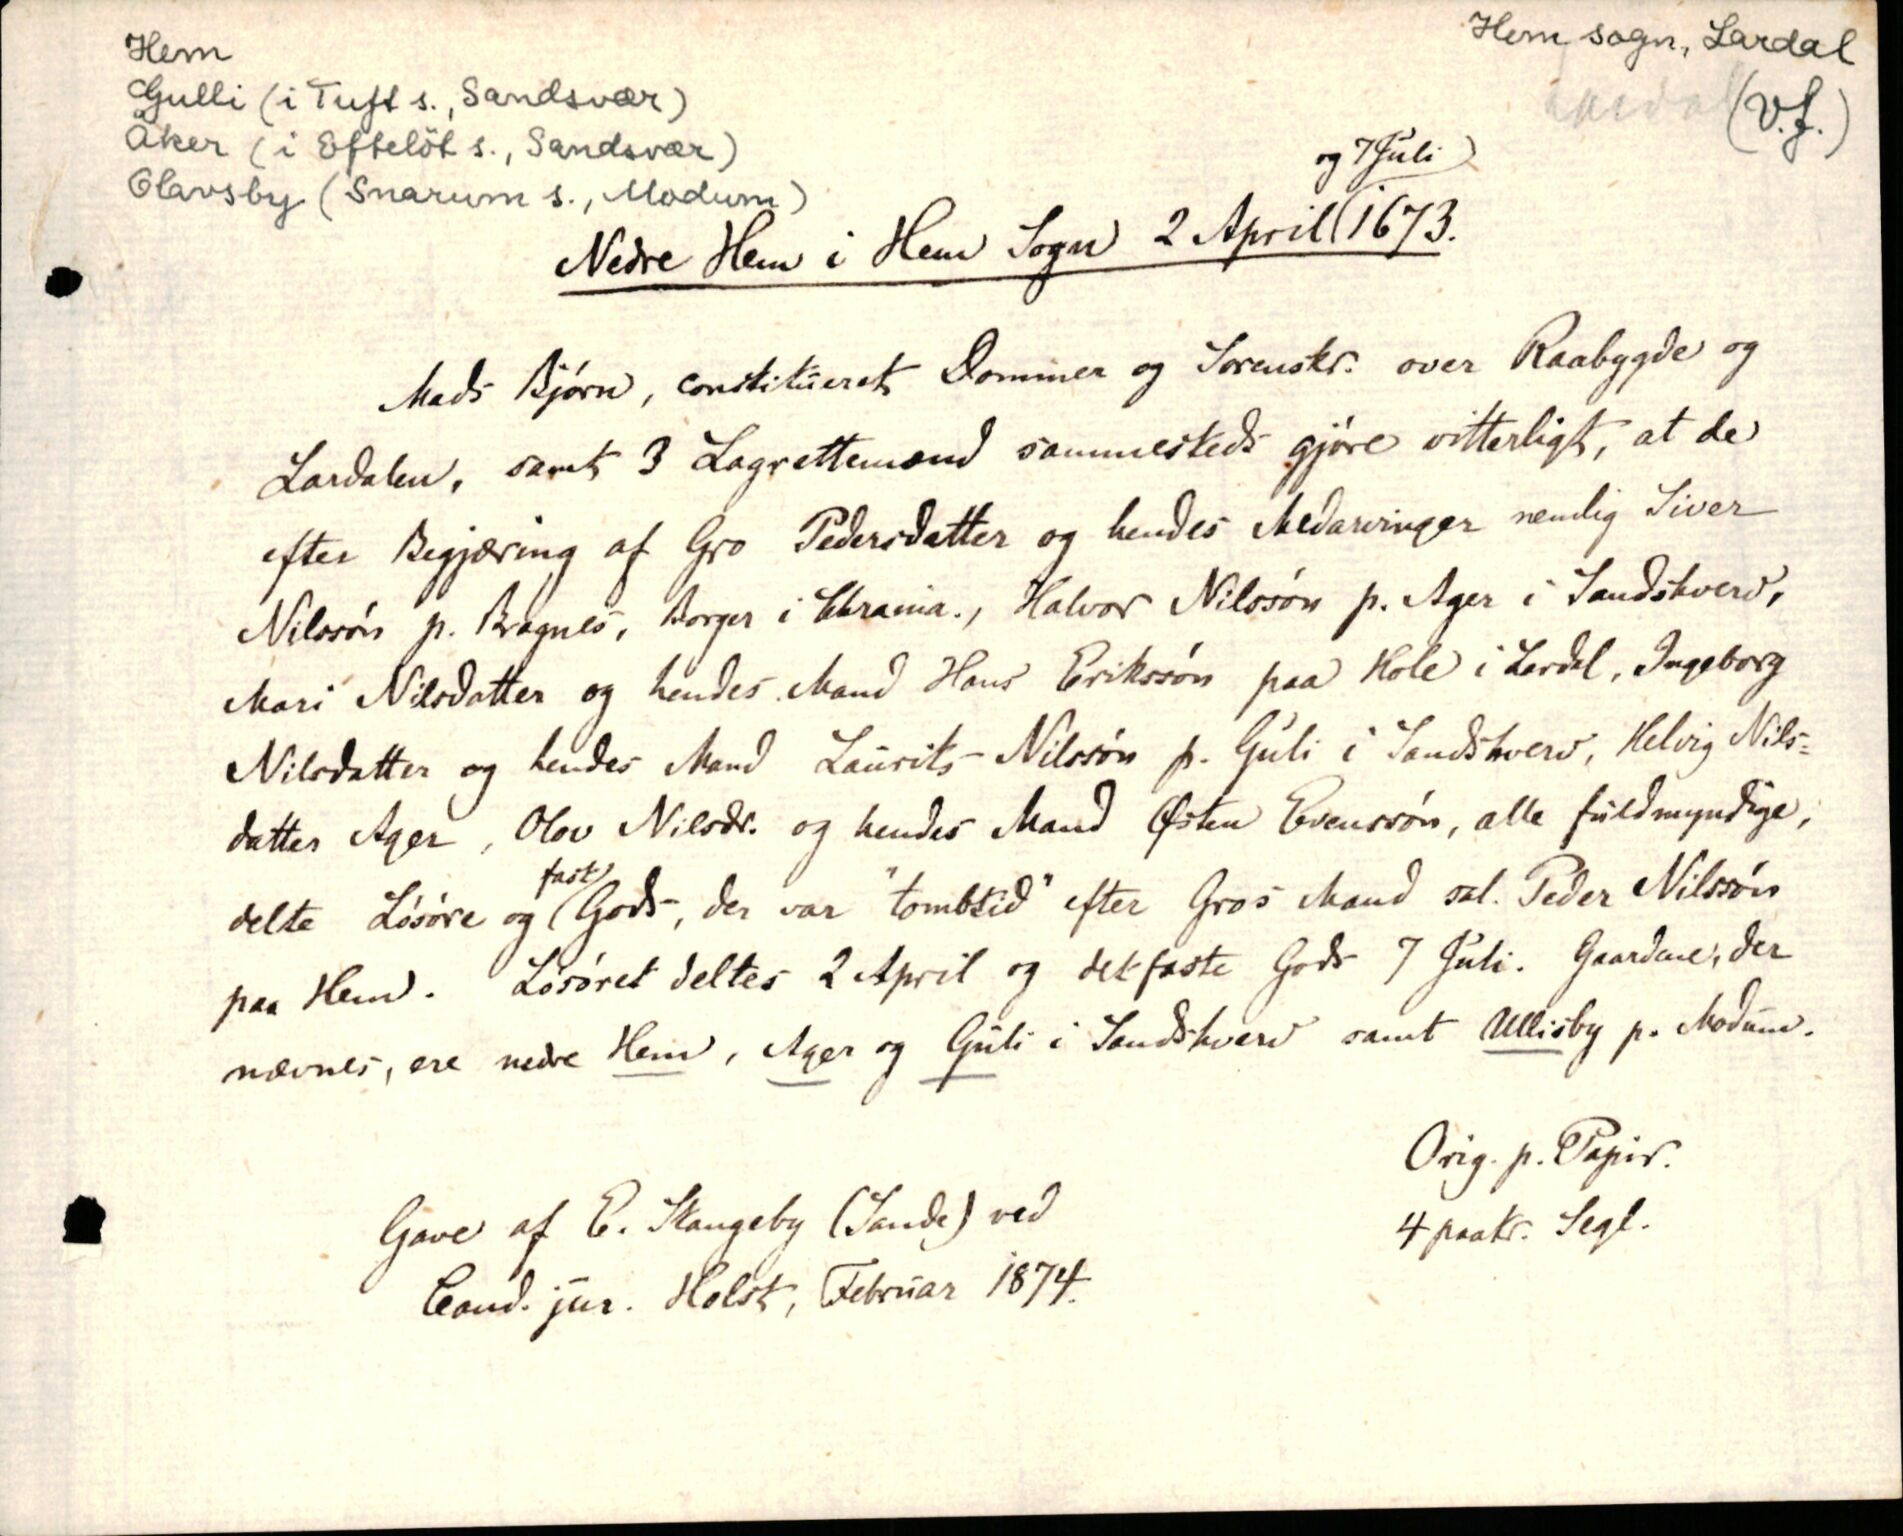 Hem
Gulli (i Tuft s., Sandsvær)
Åker (i Eftelöt s., Sandsvær)
Olavsby (Snarum s., Modum)
Hem sogn, Lardal
(V.f.)
og 7 Juli
Nedre Hem i Hem Sogn 2 April 1673.
Mads Bjórn, constitueret Dommer og Sorenskr. over Raabygde og
Lardalen, samt 3 Lagrettemænd sammesteds gjóre vitterligt, at de
efter Begjæring af Gro Pedersdatter og hendes Medarvinger nemlig Siver
Nilssón p. Bragnes, Borger i Chrania., Halvor Nilssón p. Ager i Sandshverv,
Mari Nilsdatter og hendes Mand Hans Erikssón paa Hole i Lardal, Ingeborg
Nilsdatter og hendes Mand Laurits Nilssón p. Guli i Sandshverv, Helvig Nils=
datter Ager, Olov Nilsdr. og hendes Mand Østen Evenssón, alle fuldmyndige,
delte Lósóre og fast Gods, der var "tombtid" efter Gros Mand sal. Peder Nilssón
paa Hem. Lósóret deltes 2 April og det faste Gods 7 Juli. Gaardene, der
nævnes, ere nedre Hem, Ager og Guli i Sandshverv samt Ullisby p. Modum.
Orig. p. Papir.
4 paatr. Segl.
Gave af E. Skangeby (Sande) ved
Cand. jur. Holst, Februar 1874.